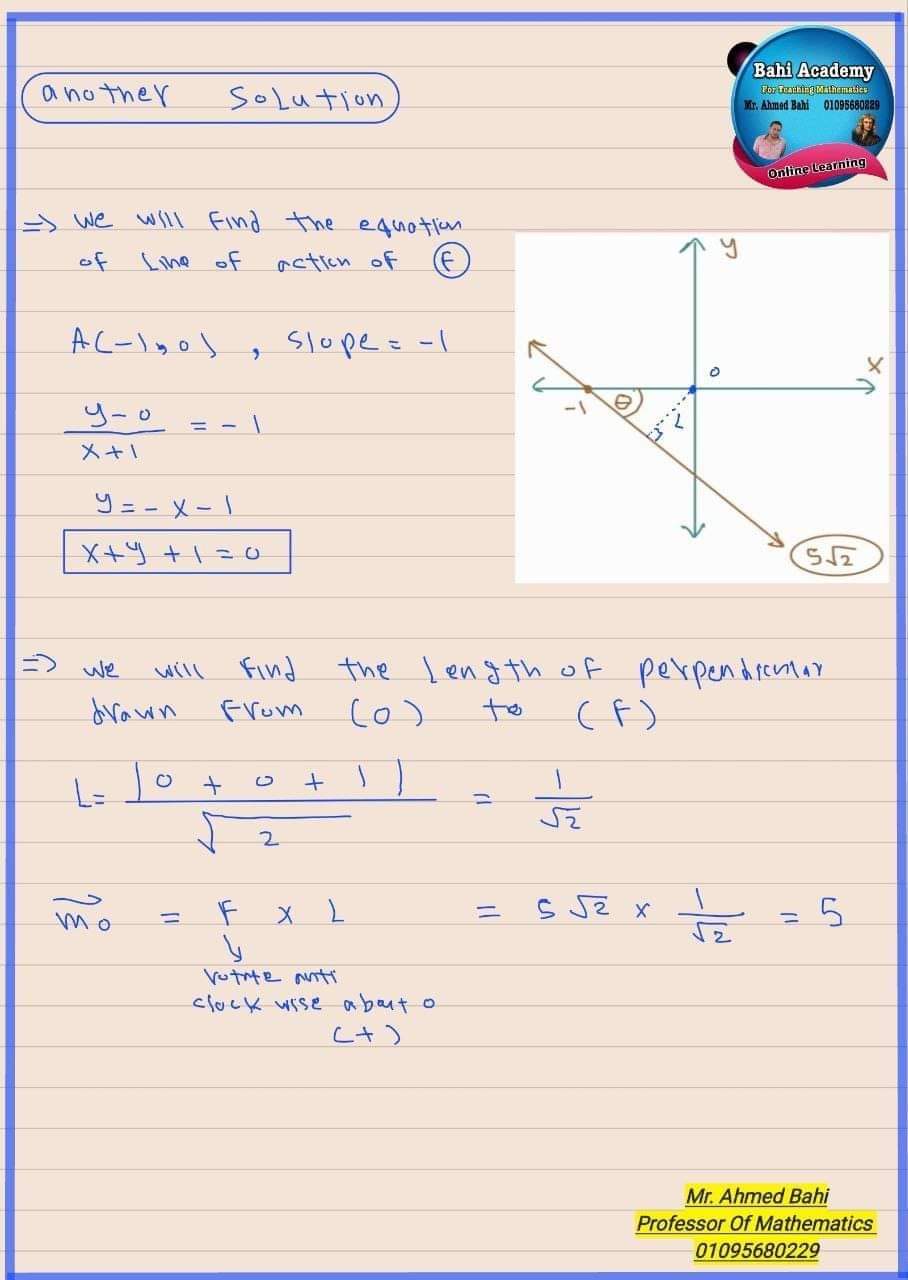 Bahi Academy
For Teaching Mathematics
Mr. Ahmed Bahi 01095680229
Online Learning
another Solution
=> we will find the equation
of Line of action of F
A(-1,0), slope = -1
y-0/x+1 = -1
y = -x-1
x+y+1=0
y
x
o
-1
θ
L
5√2
=> we will find the Length of perpendicular
drawn from (o) to (F)
L = |0 + 0 + 1|/√2 = 1/√2
mo = F x L = 5√2 x 1/√2 = 5
rotate anti
clock wise about o
(+)
Mr. Ahmed Bahi
Professor Of Mathematics
01095680229